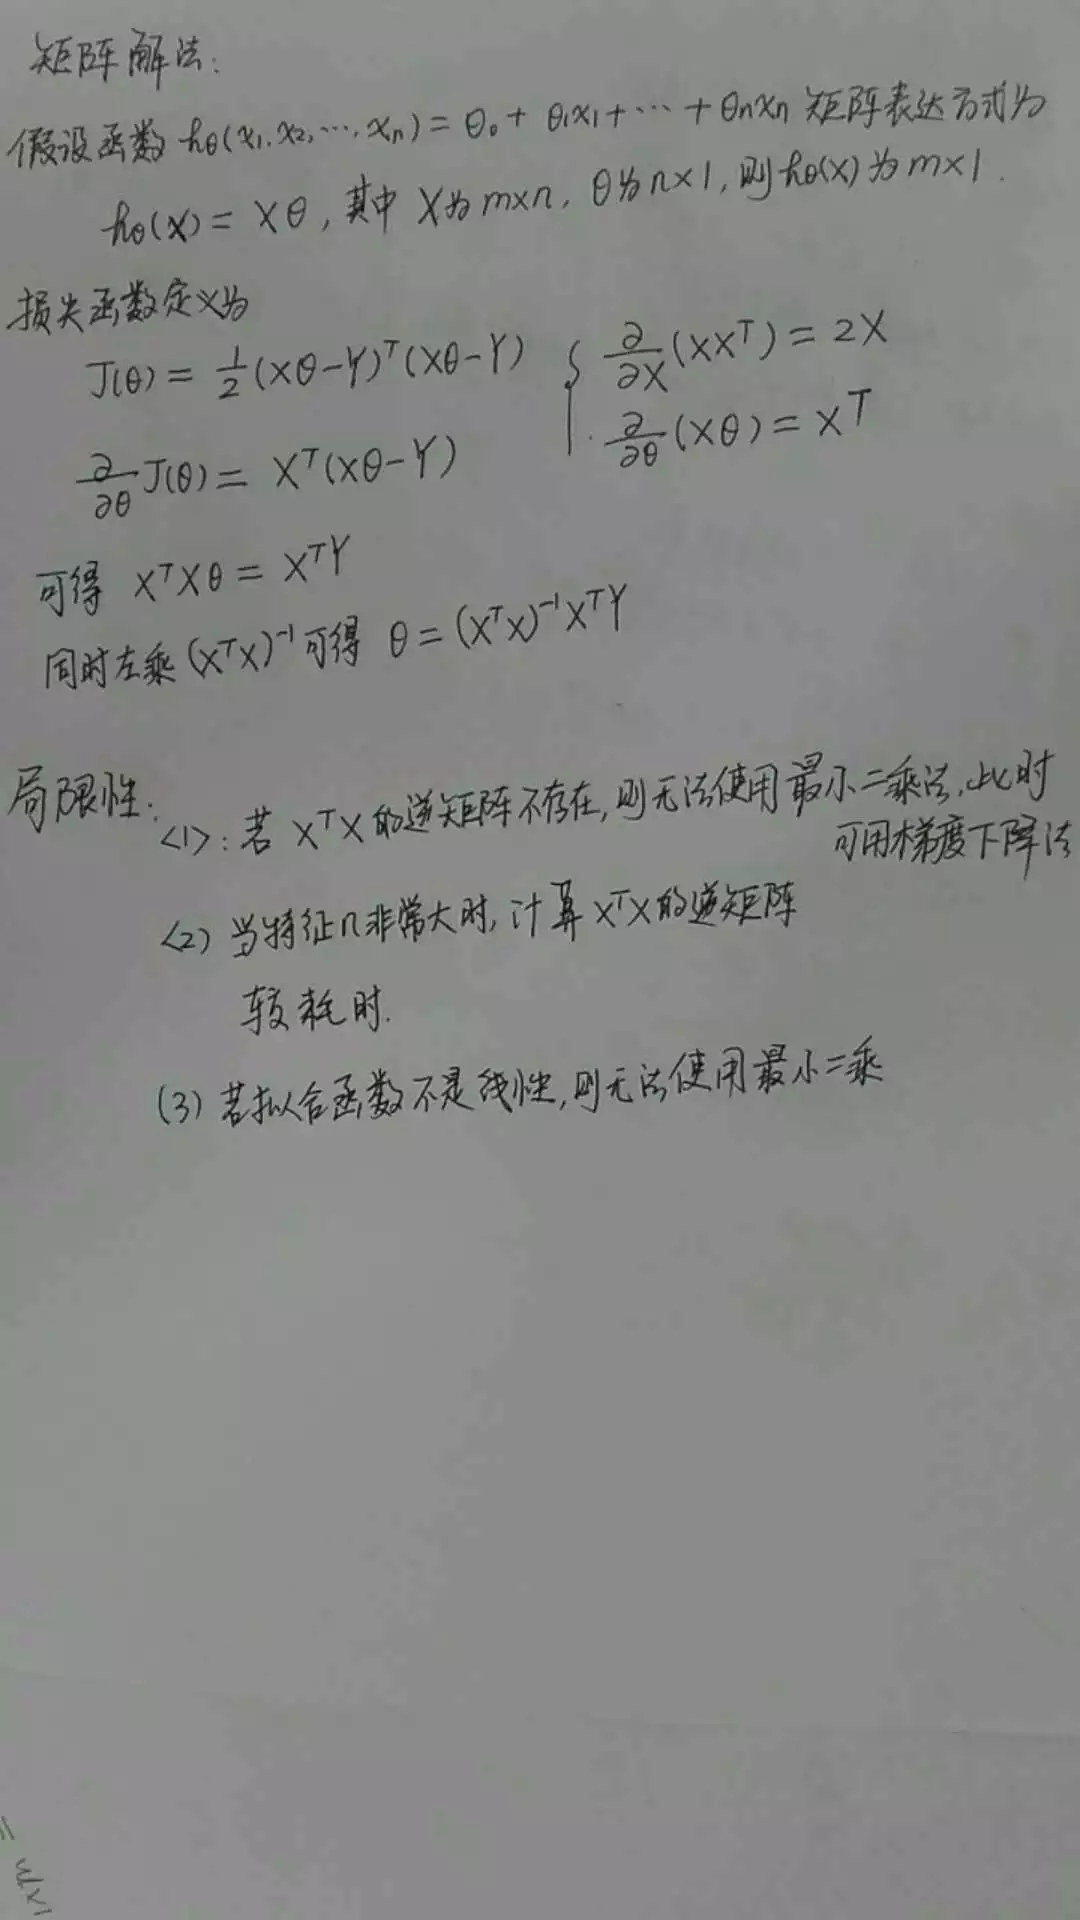 矩阵解法:
假设函数 hθ(x₁,x₂,…,xₙ) = θ₀ + θ₁x₁+ … + θₙxₙ 矩阵表达方式为
hθ(x) = Xθ, 其中 X为 m×n, θ为 n×1, 则 hθ(x) 为 m×1.
损失函数定义为
J(θ) = ½(Xθ-Y)ᵀ(Xθ-Y) { ∂/∂X (XXᵀ) = 2X
∂/∂θ J(θ) = Xᵀ(Xθ-Y) ∂/∂θ (Xθ) = Xᵀ
可得 XᵀXθ = XᵀY
同时左乘 (XᵀX)⁻¹ 可得 θ = (XᵀX)⁻¹XᵀY
局限性.
<1>: 若 XᵀX 的逆矩阵不存在, 则无法使用最小二乘法, 此时
可用梯度下降法
<2> 当特征n非常大时, 计算 XᵀX 的逆矩阵
较耗时.
(3) 若拟合函数不是线性, 则无法使用最小二乘